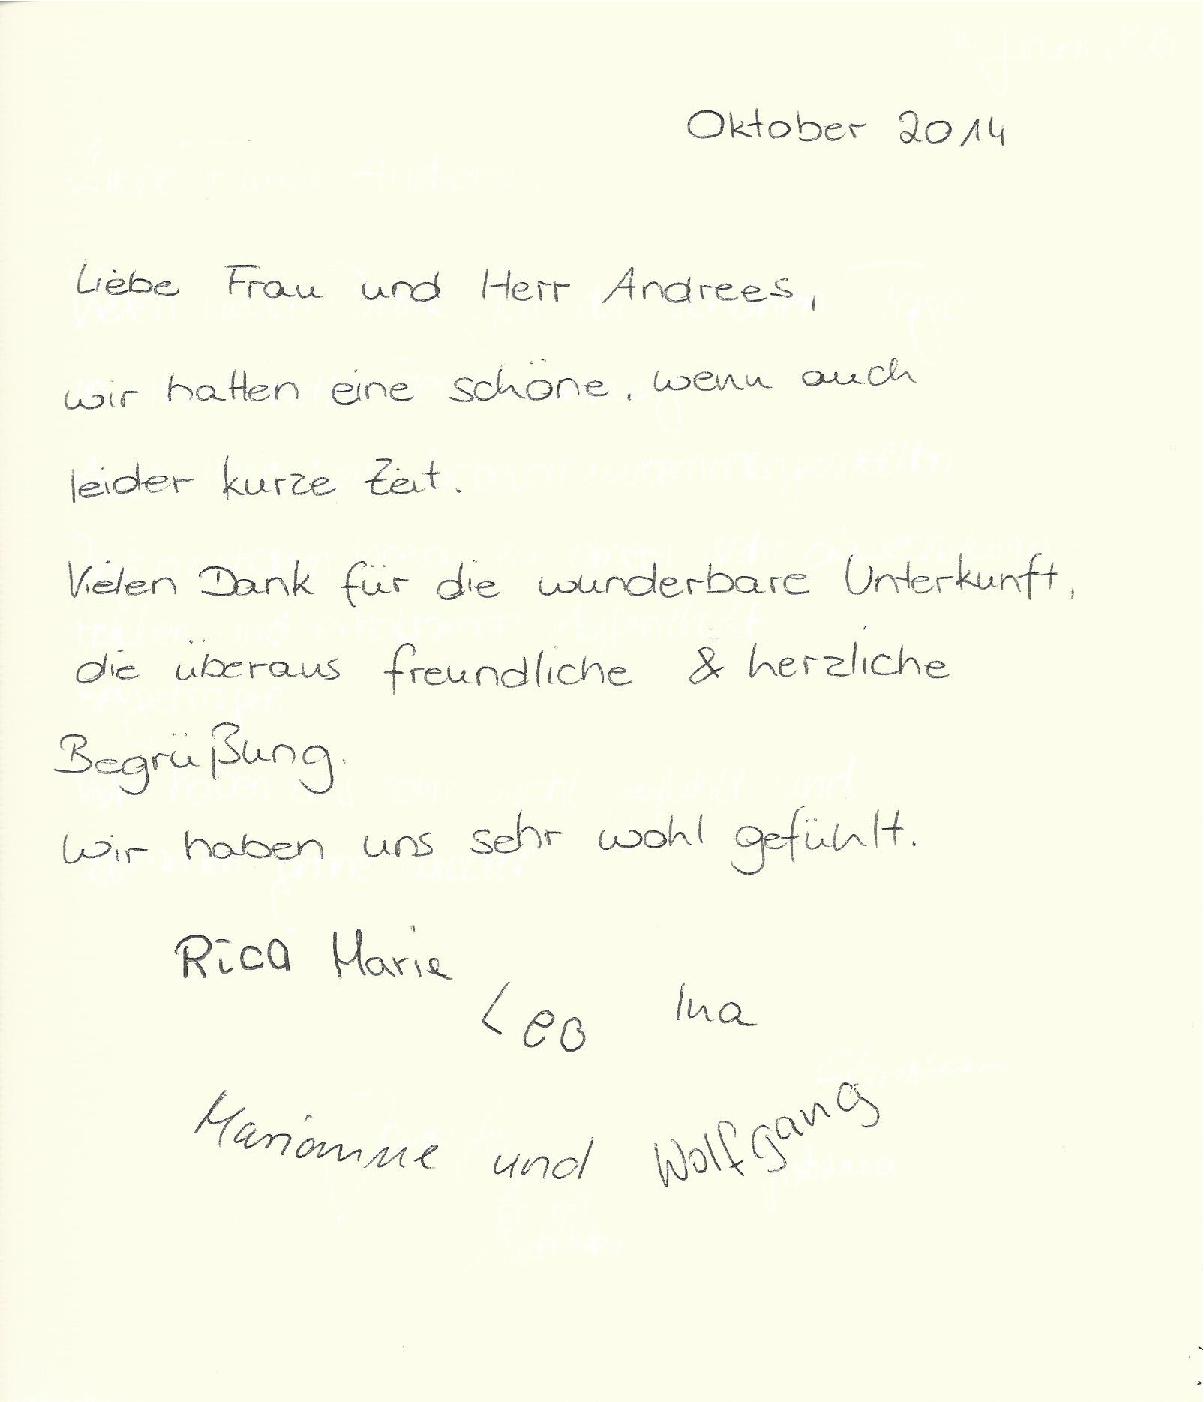 Oktober 2014
Liebe Frau und Herr Andrees,
wir hatten eine schöne, wenn auch
leider kurze Zeit.
Vielen Dank für die wunderbare Unterkunft,
die überaus freundliche & herzliche
Begrüßung.
Wir haben uns sehr wohl gefühlt.
Rica Marie
Leo Ina
Marianne und Wolfgang